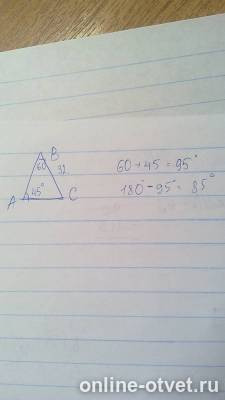 B
60
32
45°
A
C
60+45=95°
180°-95°=85°
online-otvet.ru